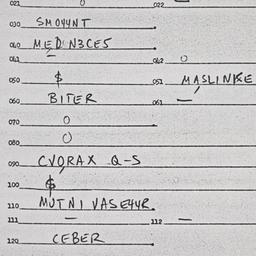 021 0 022
030 SMO44NT
040 MED N3CE5
041 — 042 0
050 $ 051 MASLINKE
060 BITER 061 —
070 0
080 0
090 CVORAX Q-S
100 $
110 MUTNI VASE44R.
111 — 112 —
120 CEBER